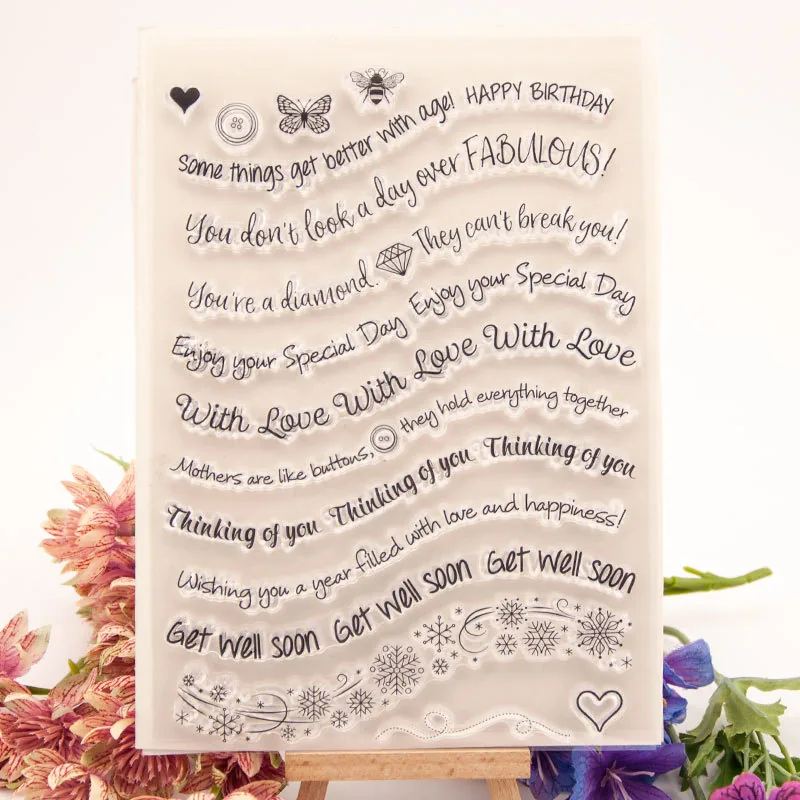 Some things get better with age! HAPPY BIRTHDAY
You don't look a day over FABULOUS!
You're a diamond. They can't break you!
Enjoy your Special Day Enjoy your Special Day
With Love With Love With Love
Mothers are like buttons, they hold everything together
Thinking of you Thinking of you Thinking of you
Wishing you a year filled with love and happiness!
Get well soon Get well soon Get well soon